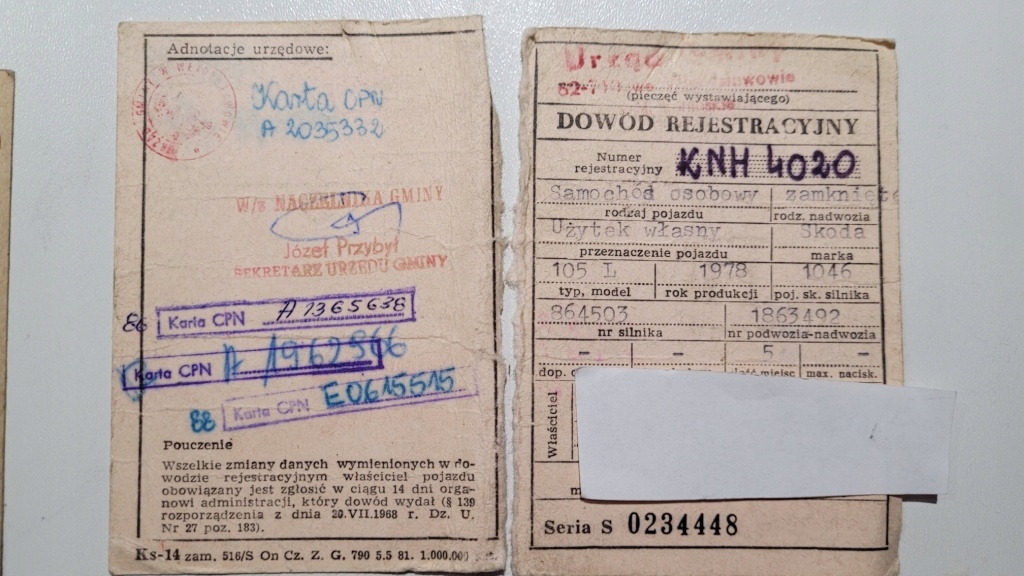 Adnotacje urzędowe:
Karta CPN
A 2035332
W/z NACZELNIKA GMINY
Józef Przybył
SEKRETARZ URZĘDU GMINY
86 Karta CPN A 1365638
Karta CPN A 1962946
88 Karta CPN E0615515
Pouczenie
Wszelkie zmiany danych wymienionych w do-
wodzie rejestracyjnym właściciel pojazdu
obowiązany jest zgłosić w ciągu 14 dni orga-
nowi administracji, który dowód wydał (§ 139
rozporządzenia z dnia 20.VII.1968 r. Dz. U.
Nr 27 poz. 183).
Ks-14 zam. 516/S On Cz. Z. G. 790 5.5 81. 1.000.000
Urząd Gminy
(pieczęć wystawiającego)
DOWÓD REJESTRACYJNY
Numer
rejestracyjny KNH 4020
Samochód osobowy zamknięte
rodzaj pojazdu rodz. nadwozia
Użytek własny Skoda
przeznaczenie pojazdu marka
105 L 1978 1046
typ, model rok produkcji poj. sk. silnika
864503 1863492
nr silnika nr podwozia-nadwozia
– – 5 –
dop. max. nacisk.
Właściciel
Seria S 0234448